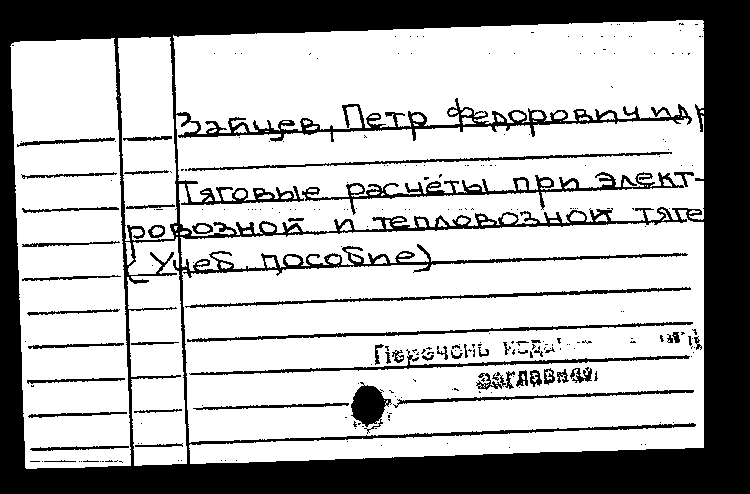 Зайцев, Петр Федорович и др
Тяговые расчёты при элект-
ровозной и тепловозной тяге
(Учеб. пособие)
Перечень
заглавная